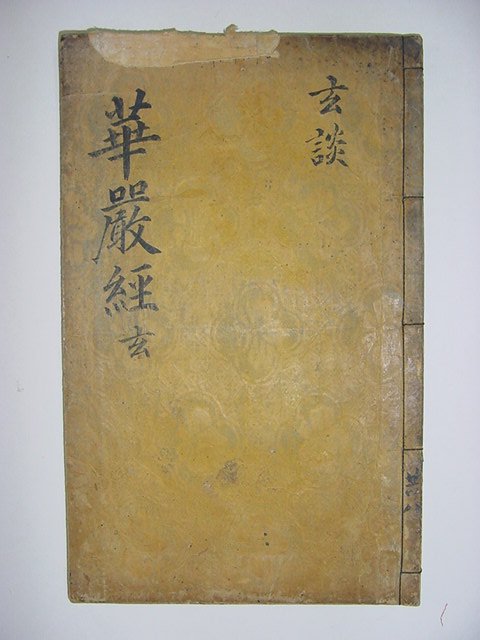 玄談
華嚴經 玄